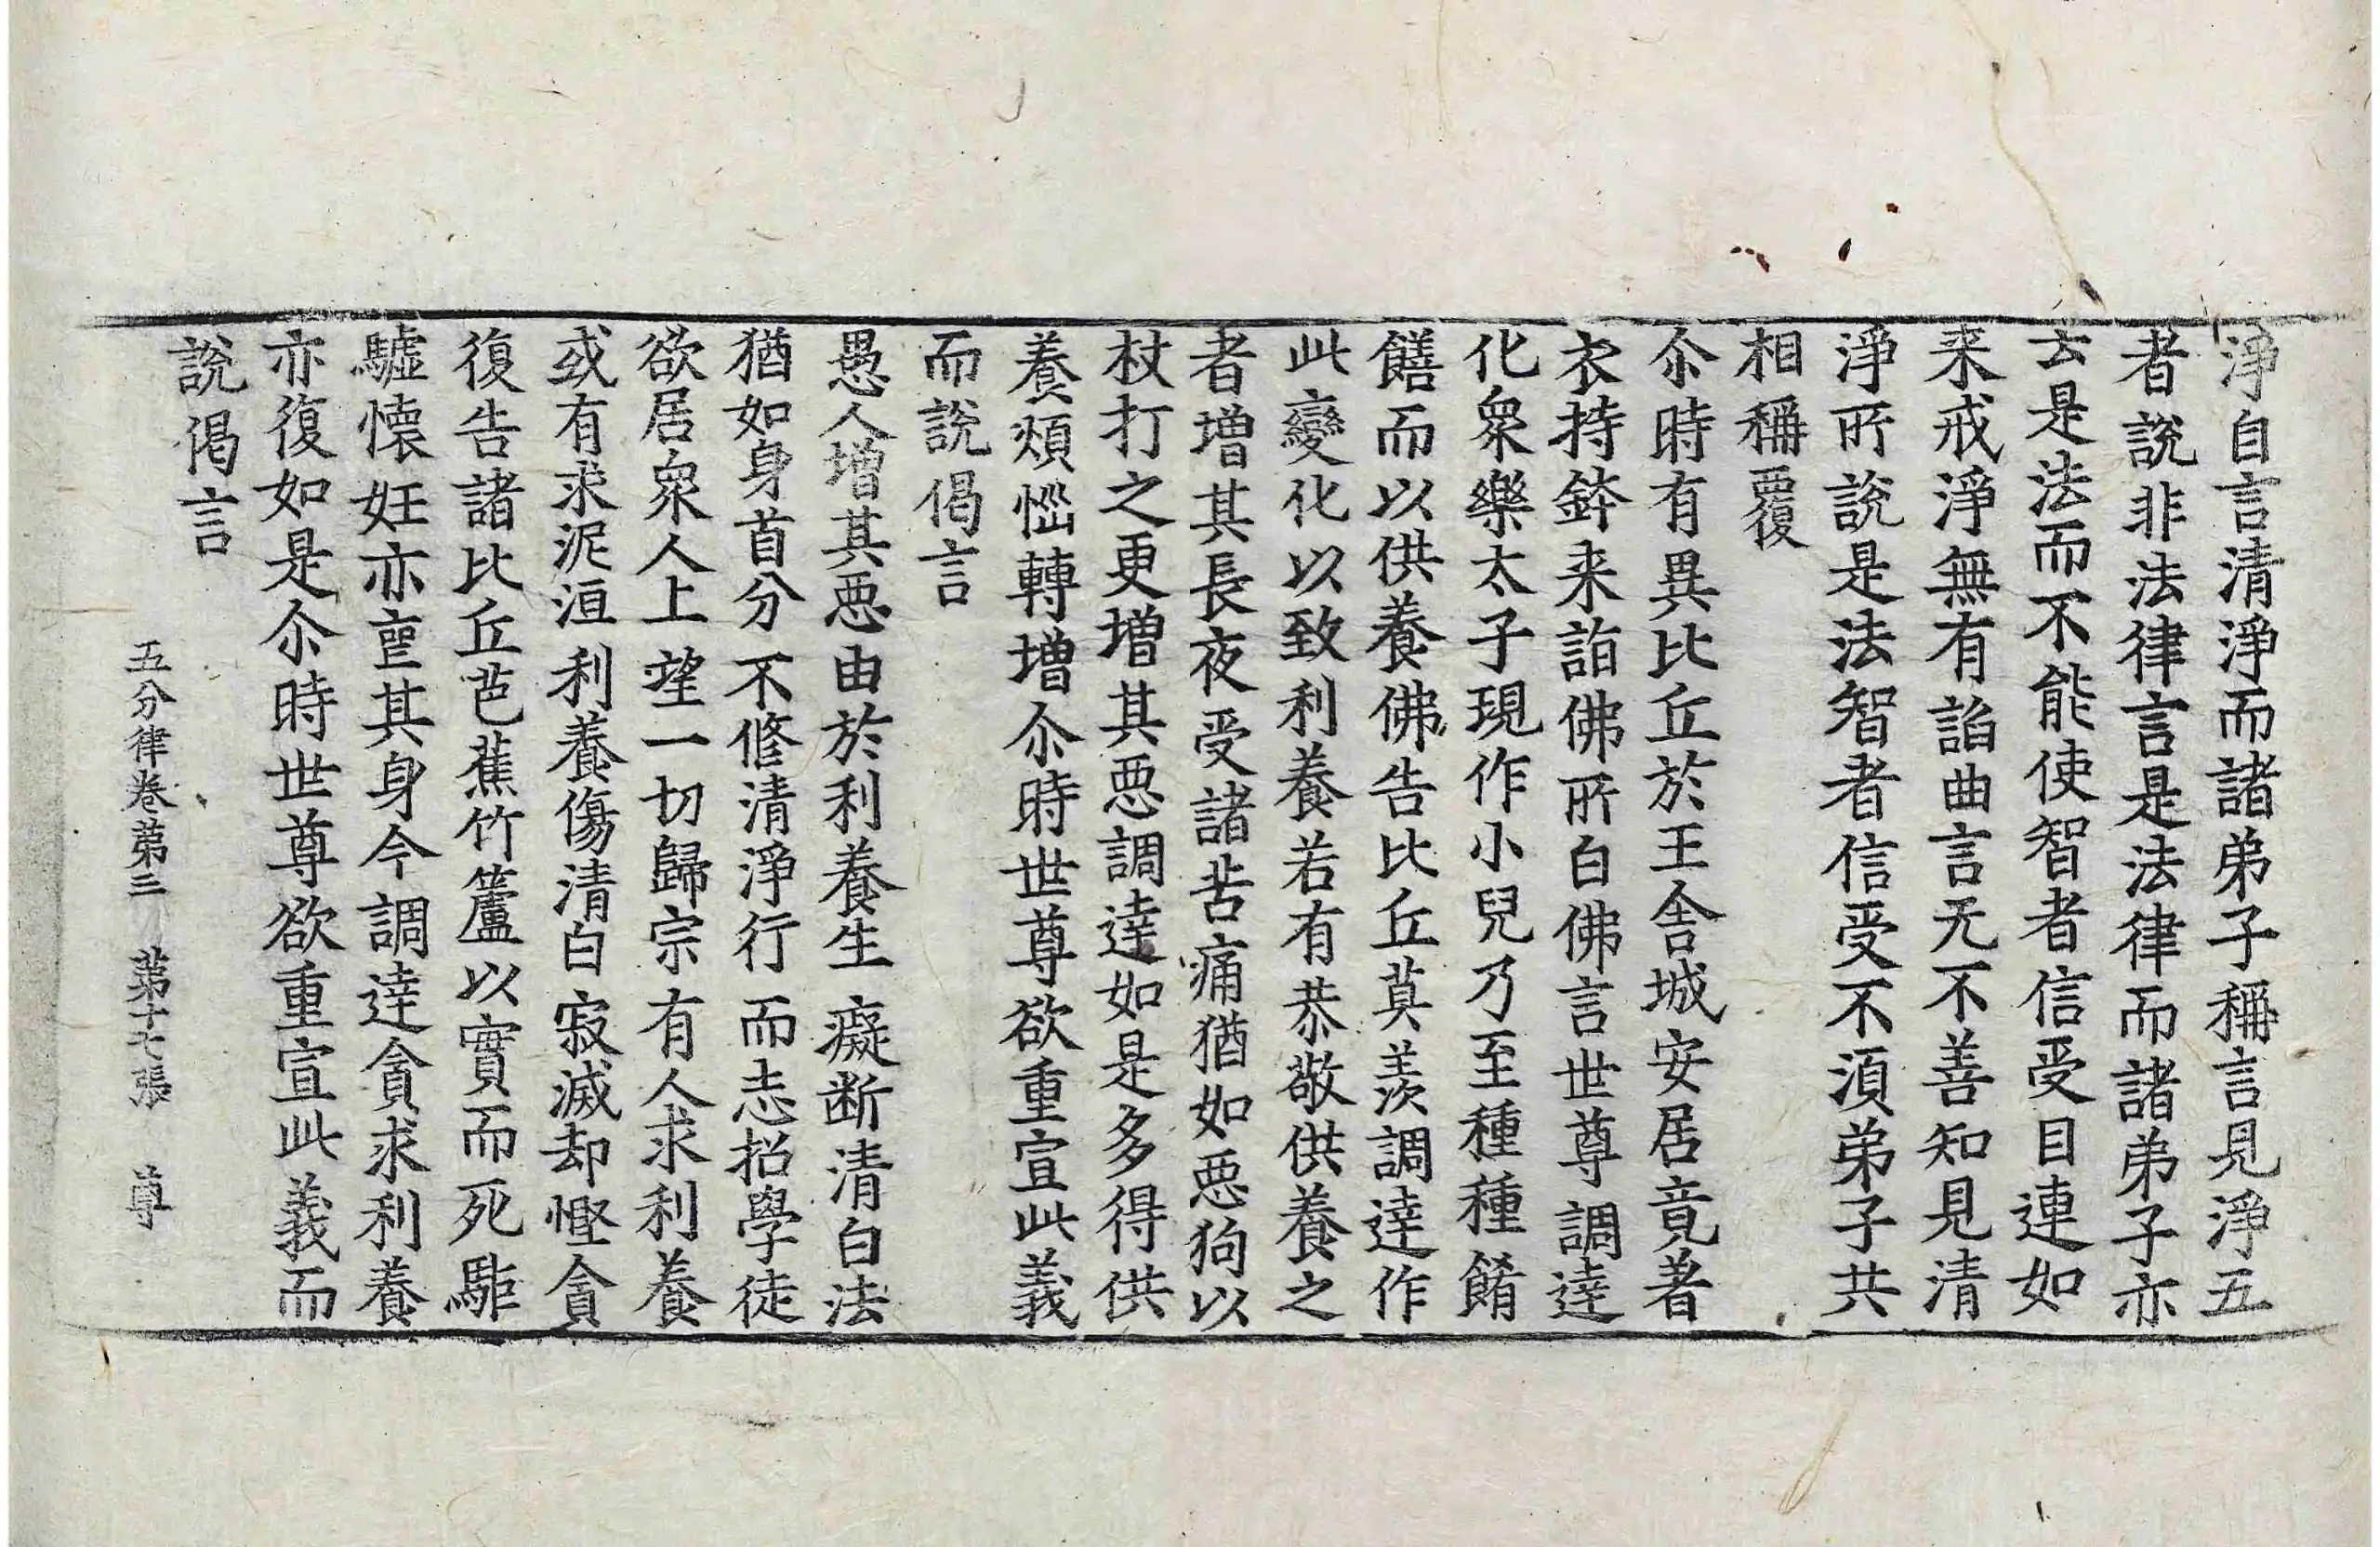 淨自言清淨而諸弟子稱言見淨五
者說非法律言是法律而諸弟子亦
云是法而不能使智者信受目連如
来戒淨無有諂曲言无不善知見清
淨所說是法智者信受不湏弟子共
相稱覆
尒時有異比丘於王舍城安居竟著
衣持鉢来詣佛所白佛言世尊調達
化衆樂太子現作小兒乃至種種餚
饍而以供養佛告比丘莫羨調達作
此變化以致利養若有恭敬供養之
者增其長夜受諸苦痛猶如惡狗以
杖打之更增其惡調達如是多得供
養煩惱轉增尒時世尊欲重宣此義
而說偈言
愚人增其惡由於利養生 癡断清白法
猶如身首分 不修清淨行 而志招學徒
欲居衆人上 望一切歸宗 有人求利養
或有求泥洹 利養傷清白 寂滅却慳貪
復告諸比丘芭蕉竹蘆以實而死駏
驉懷妊亦喪其身今調達貪求利養
亦復如是尒時世尊欲重宣此義而
說偈言
五分律卷第三 第十七張 尊